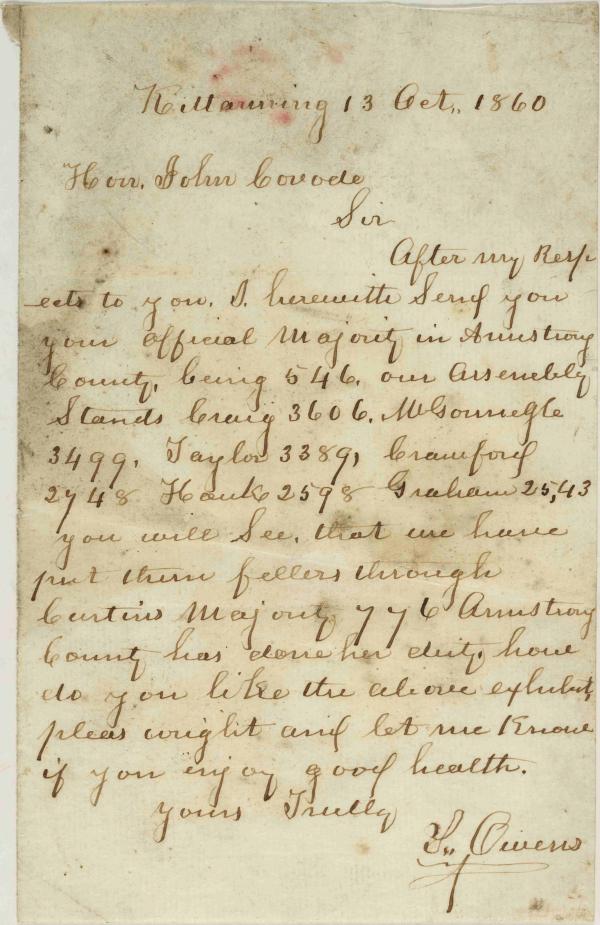 Kittanning 13 Oct., 1860
Hon. John Covode
Sir
After my Resp
ects to you. I. herewith Send you
your official Majority in Armstrong
County, being 546. our Assembly
Stands Craig 3606. McGonnegle
3499, Taylor 3389, Crawford
2748 Hauk 2598 Graham 25,43
you will See, that we have
put them fellers through
Curtins Majority 776 Armstrong
County has done her duty. how
do you like the above exhibit,
pleas wright and let me Know
if you injoy good health.
yours Trully
Owens